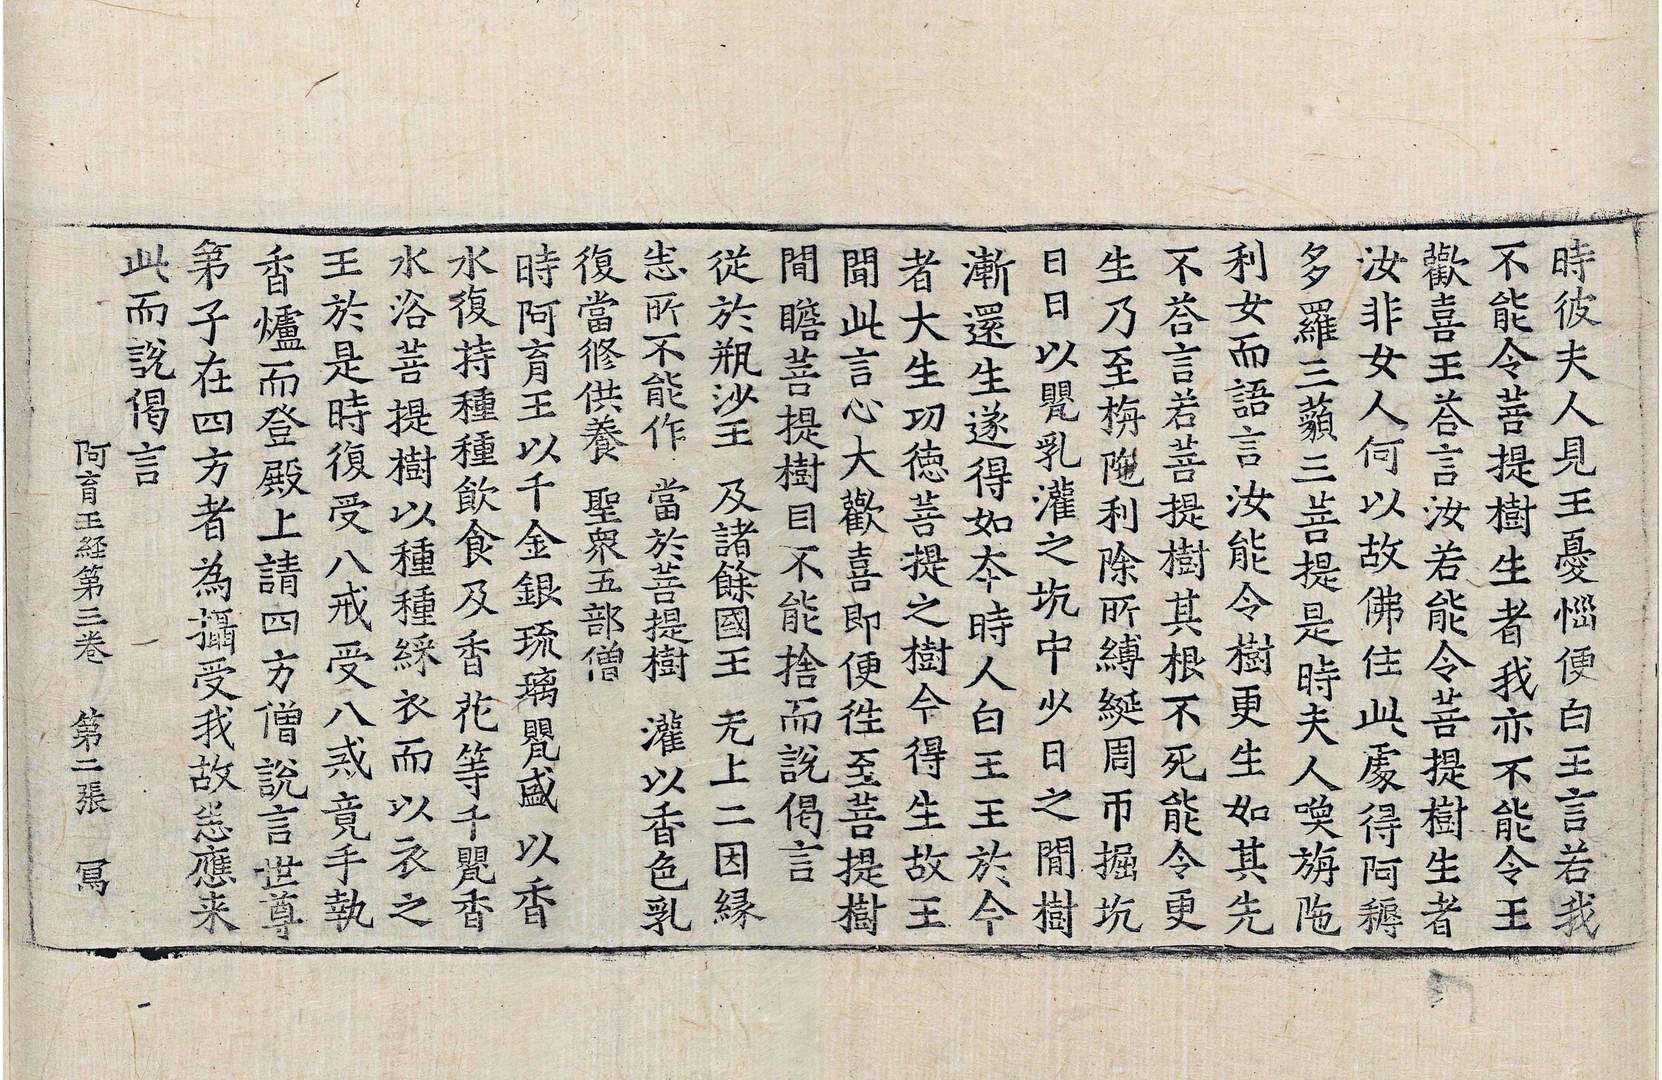 時彼夫人見王憂惱便白王言若我
不能令菩提樹生者我亦不能令王
歡喜王荅言汝若能令菩提樹生者
汝非女人何以故佛住此處得阿耨
多羅三藐三菩提是時夫人喚旃陁
利女而語言汝能令樹更生如其先
不荅言若菩提樹其根不死能令更
生乃至栴陁利除所縛綖周帀掘坑
日日以甖乳灌之坑中少日之閒樹
漸還生遂得如夲時人白王王於今
者大生功徳菩提之樹今得生故王
聞此言心大歡喜即便徃至菩提樹
閒瞻菩提樹目不能捨而說偈言
從於瓶沙王 及諸餘國王 无上二因縁
悉所不能作 當於菩提樹 灌以香色乳
復當修供養 聖衆五部僧
時阿育王以千金銀琉璃甖盛以香
水復持種種飲食及香花等千甖香
水浴菩提樹以種種綵衣而以衣之
王於是時復受八戒受八戒竟手執
香爐而登殿上請四方僧說言世尊
第子在四方者為攝受我故悉應来
此而說偈言
阿育王経第三巻 第二張 冩